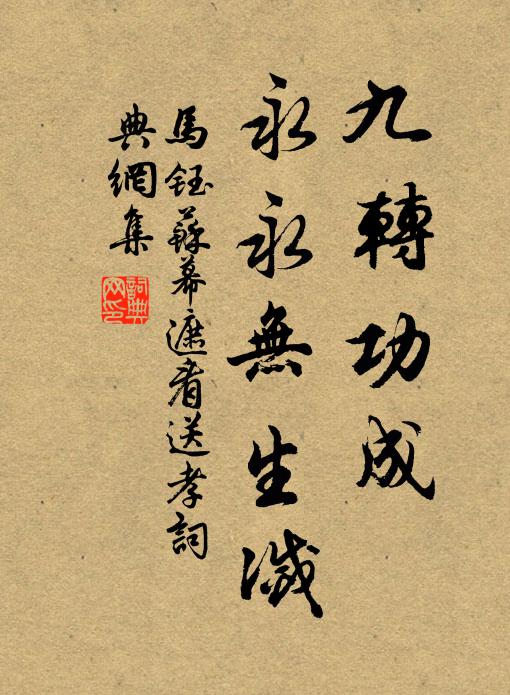 九轉功成
永永無生滅
馬鈺蘇幕遮看送孝詞
典網集
詞典網印